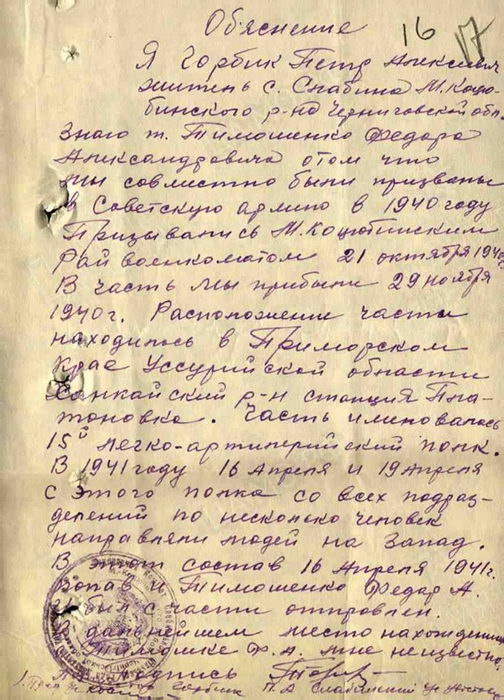 Объяснение 16 17
Я Горбик Петр Алексеевич
житель с. Слабина М. Коцю-
бинского р-но Черниговской обл.
Знаю т. Тимошенко Федара
Александровича отом что
мы совмистно были призваны
в Советскую армию в 1940 году
Призывались М. Коцюбинским
Райвоенкоматом 21 октября 1940г.
В часть мы прибыли 29 ноября
1940г. Расположение части
находилось в Приморском
Крае Уссурийской области
Ханкайский р-н станция Пла-
тоновка. Часть именовалась
15й легко-артилерийский полк.
В 1941 году 16 Апреля и 19 Апреля
с этого полка со всех подраз-
делений по несколько человек
направляли людей на Запад.
В этот состав 16 Апреля 1941г.
Попав и Тимошенко Федар А.
и был с части отправлен.
В дальнейшем место нахождения
Тимошенке Ф. А. мне неизвестно
подпись
Горбик П. А. Слабинский